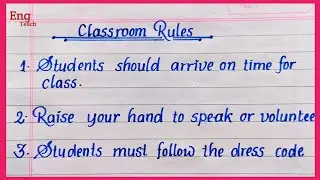 Eng
Teach
Classroom Rules
1. Students should arrive on time for
class.
2. Raise your hand to speak or voluntee
3. Students must follow the dress code